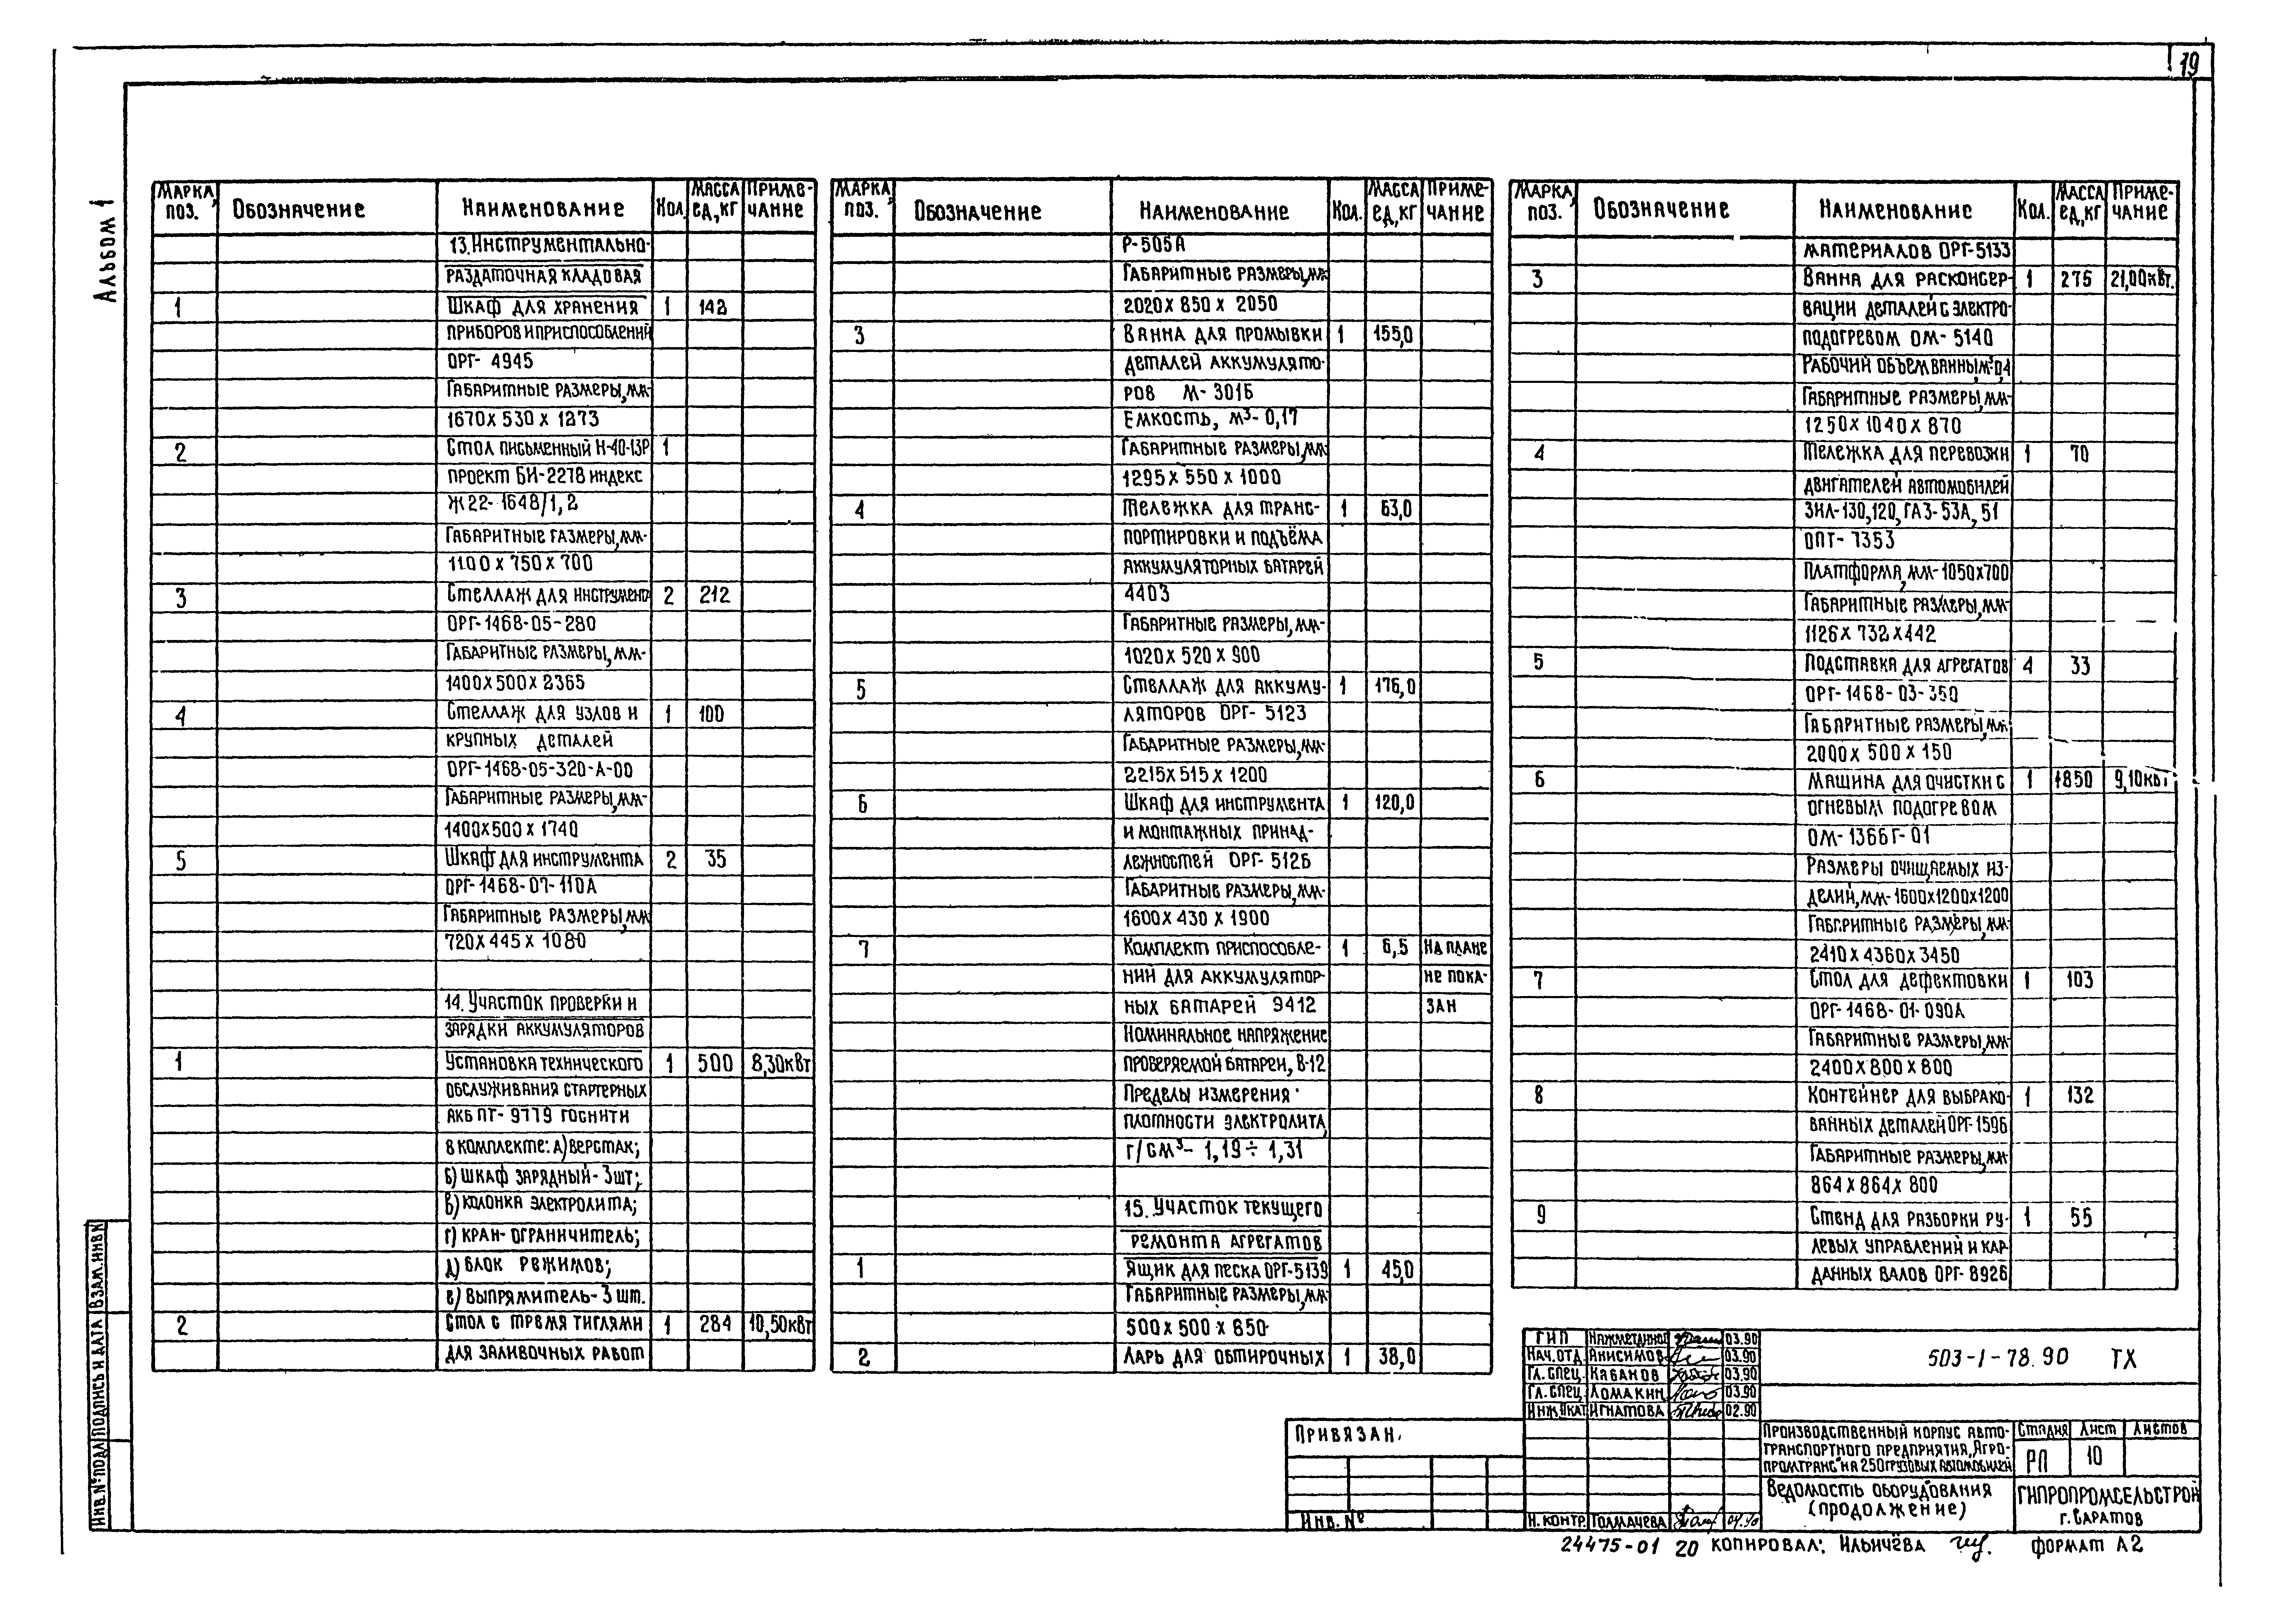 19
Альбом 1
Марка, поз. Обозначение Наименование Кол. Масса ед,кг Приме-чание
13. Инструментально-
раздаточная кладовая
1 Шкаф для хранения 1 142
приборов и приспособлений
ОРГ- 4945
Габаритные размеры,мм-
1670 х 530 х 1273
2 Стол письменный Н-40-13Р 1
проект БИ-2278 индекс
Ж22- 1648/1,2
Габаритные размеры,мм-
1100 х 750 х 700
3 Стеллаж для инструмента 2 212
ОРГ-1468-05-280
Габаритные размеры,мм-
1400х500х2365
4 Стеллаж для узлов и 1 100
крупных деталей
ОРГ-1468-05-320-А-00
Габаритные размеры,мм-
1400х500х1740
5 Шкаф для инструмента 2 35
ОРГ-1468-07-110А
Габаритные размеры,мм
720х445х1080
14. Участок проверки и
зарядки аккумуляторов
1 Установка технического 1 500 8,30кВт
обслуживания стартерных
АКБ ПТ- 9779 ГОСНИТИ
в комплекте: а) верстак;
б) шкаф зарядный- 3шт;
в) колонка электролита;
г) кран- ограничитель;
д) блок режимов;
е) выпрямитель- 3 шт.
2 Стол с тремя тиглями 1 284 10,50кВт
для заливочных работ
Марка, поз. Обозначение Наименование Кол. Масса ед,кг Приме-чание
Р-505А
Габаритные размеры,мм
2020 х 850 х 2050
3 Ванна для промывки 1 155,0
деталей аккумулято-
ров М- 301Б
Емкость, м³- 0,17
Габаритные размеры,мм
1295 х 550 х 1000
4 Тележка для транс- 1 63,0
портировки и подъёма
аккумуляторных батарей
4403
Габаритные размеры,мм-
1020 х 520 х 900
5 Стеллаж для аккуму- 1 176,0
ляторов ОРГ- 5123
Габаритные размеры,мм-
2215х515х1200
6 Шкаф для инструмента 1 120,0
и монтажных принад-
лежностей ОРГ- 5126
Габаритные размеры,мм-
1600 х 430 х 1900
7 Комплект приспособле- 1 6,5 на плане
ний для аккумулятор- не пока-
ных батарей Э412 зан
Номинальное напряжение
проверяемой батареи, В-12
Пределы измерения
плотности электролита,
г/см³- 1,19 ÷ 1,31
15. Участок текущего
ремонта агрегатов
1 Ящик для песка ОРГ-5139 1 45,0
Габаритные размеры,мм-
500 х 500 х 850
2 Ларь для обтирочных 1 38,0
Марка, поз. Обозначение Наименование Кол. Масса ед,кг Приме-чание
материалов ОРГ-5133
3 Ванна для расконсер- 1 275 21,00кВт.
вации деталей с электро-
подогревом ОМ- 5140
Рабочий объем ванны,м³-0,4
Габаритные размеры,мм-
1250 х 1040 х 870
4 Тележка для перевозки 1 70
двигателей автомобилей
ЗИЛ-130,120, ГАЗ-53А, 51
ОПТ- 7353
Платформа,мм-1050х700
Габаритные размеры,мм-
1126х 732 х442
5 Подставка для агрегатов 4 33
ОРГ-1468- 03-350
Габаритные размеры,мм-
2000 х 500 х 150
6 Машина для очистки с 1 1850 9,10кВт
огневым подогревом
ОМ-1366Г-01
Размеры очищаемых из-
делий,мм-1600х1200х1200
Габаритные размеры,мм-
2410х4360х3450
7 Стол для дефектовки 1 103
ОРГ-1468- 01-090А
Габаритные размеры,мм-
2400х800х800
8 Контейнер для выбрако- 1 132
ванных деталей ОРГ-1596
Габаритные размеры,мм-
864х864х 800
9 Стенд для разборки ру- 1 55
левых управлений и кар-
данных валов ОРГ- 8926
ГИП 03.90
Нач.отд. Анисимов 03.90
Гл. спец. Кабанов 03.90
Гл. спец. Ломакин 03.90
Инж.IIкат Игнатова 02.90
Н. контр. Толмачева 04.90
503-1-78.90 ТХ
Производственный корпус авто-
транспортного предприятия „Агро-
промтранс" на 250 грузовых автомобилей
Стадия Лист Листов
РП 10
Ведомость оборудования
(продолжение)
ГИПРОПРОМСЕЛЬСТРОЙ
г. Саратов
Привязан.
Инв. №
Инв.№ подл Подпись и дата Взам.инв №
24475-01 20 Копировал: Ильичёва Формат А2